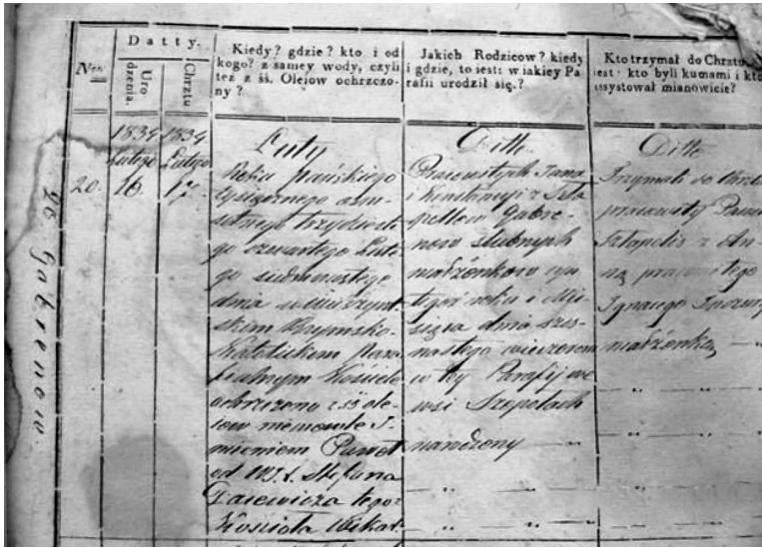 Datty.
Nro.
Uro
dzenia.
Chrztu
Kiedy? gdzie? kto i od
kogo? z samey wody, czyli
tez z śś. Oleiow ochrzczo-
ny?
Jakich Rodzicow? kiedy
i gdzie, to iest: w iakiey Pa-
rafii urodził się.?
Kto trzymał do Chrztu,
iest: kto byli kumami i kto
assystował mianowicie?
20 Gabrenow.
20.
1834
Lutego
16.
1834
Lutego
17.
Luty
Roku Pańskiego
tysiącznego ośm-
setnego trzydzieste
go czwartego Lute
go siedmnastego
dnia w
skim Rzymsko-
Katolickim Para
fialnym Kościele
ochrzczono z śś ole-
iow niemowle I-
mieniem Paweł
od WJ. X. Stefana
tego
Kościoła Wikar.
Ditto
Pracowitych Jana
i Konstancyi z Szla
pellow Gabre-
now slubnych
małżonkow
tegoż roku i Mie-
siąca dnia szes-
nastego wieczorem
w tey Parafij we
wsi Szopolach
narodzony
Ditto
Trzymali do Chrztu
pracowity
Szlapelis z An-
ną pracowitego
Ignacego
małżonką